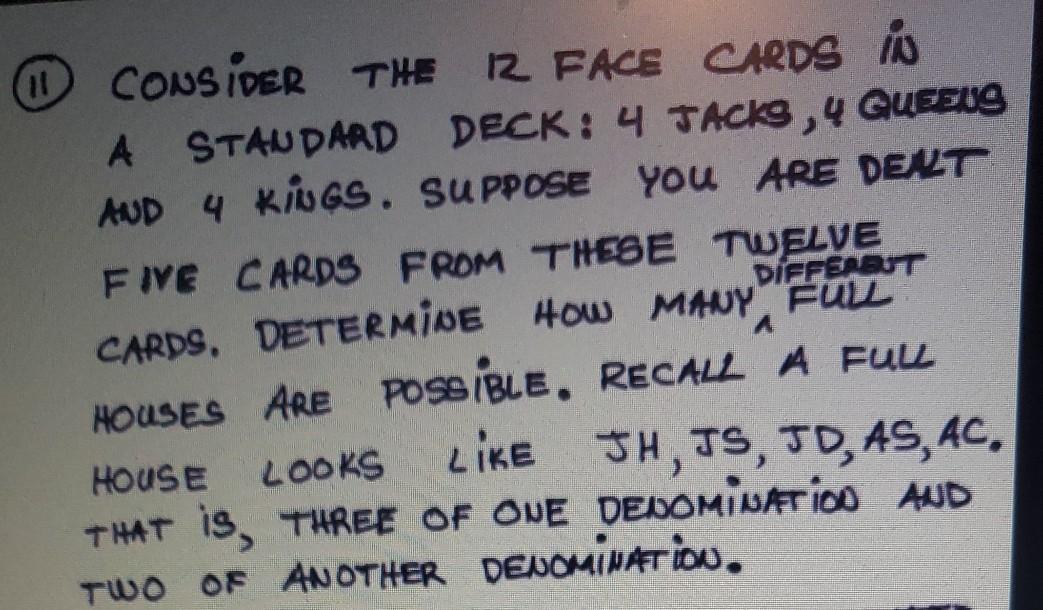 11 CONSIDER THE 12 FACE CARDS IN
A STANDARD DECK: 4 JACKS, 4 QUEENS
AND 4 KINGS. SUPPOSE YOU ARE DEALT
FIVE CARDS FROM THESE TWELVE
DIFFERENT
CARDS. DETERMINE HOW MANY ^ FULL
HOUSES ARE POSSIBLE. RECALL A FULL
HOUSE LOOKS LIKE JH, JS, JD, AS, AC.
THAT IS, THREE OF ONE DENOMINATION AND
TWO OF ANOTHER DENOMINATION.